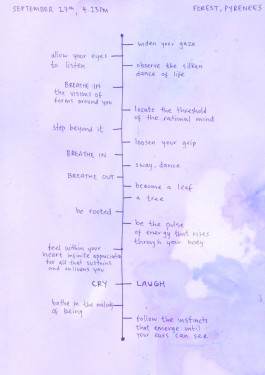 SEPTEMBER 27TH, 4.23PM
FOREST, PYRENEES
widen your gaze
allow your eyes
to listen
observe the silken
dance of life
BREATHE IN
the visions of
forms around you
locate the threshold
of the rational mind
step beyond it
loosen your grip
BREATHE IN
sway, dance
BREATHE OUT
become a leaf
a tree
be rooted
be the pulse
of energy that rises
through your body
feel within your
heart infinite appreciation
for all that sustains
and enlivens you
CRY
LAUGH
bathe in the melody
of being
follow the instincts
that emerge until
your ears can see